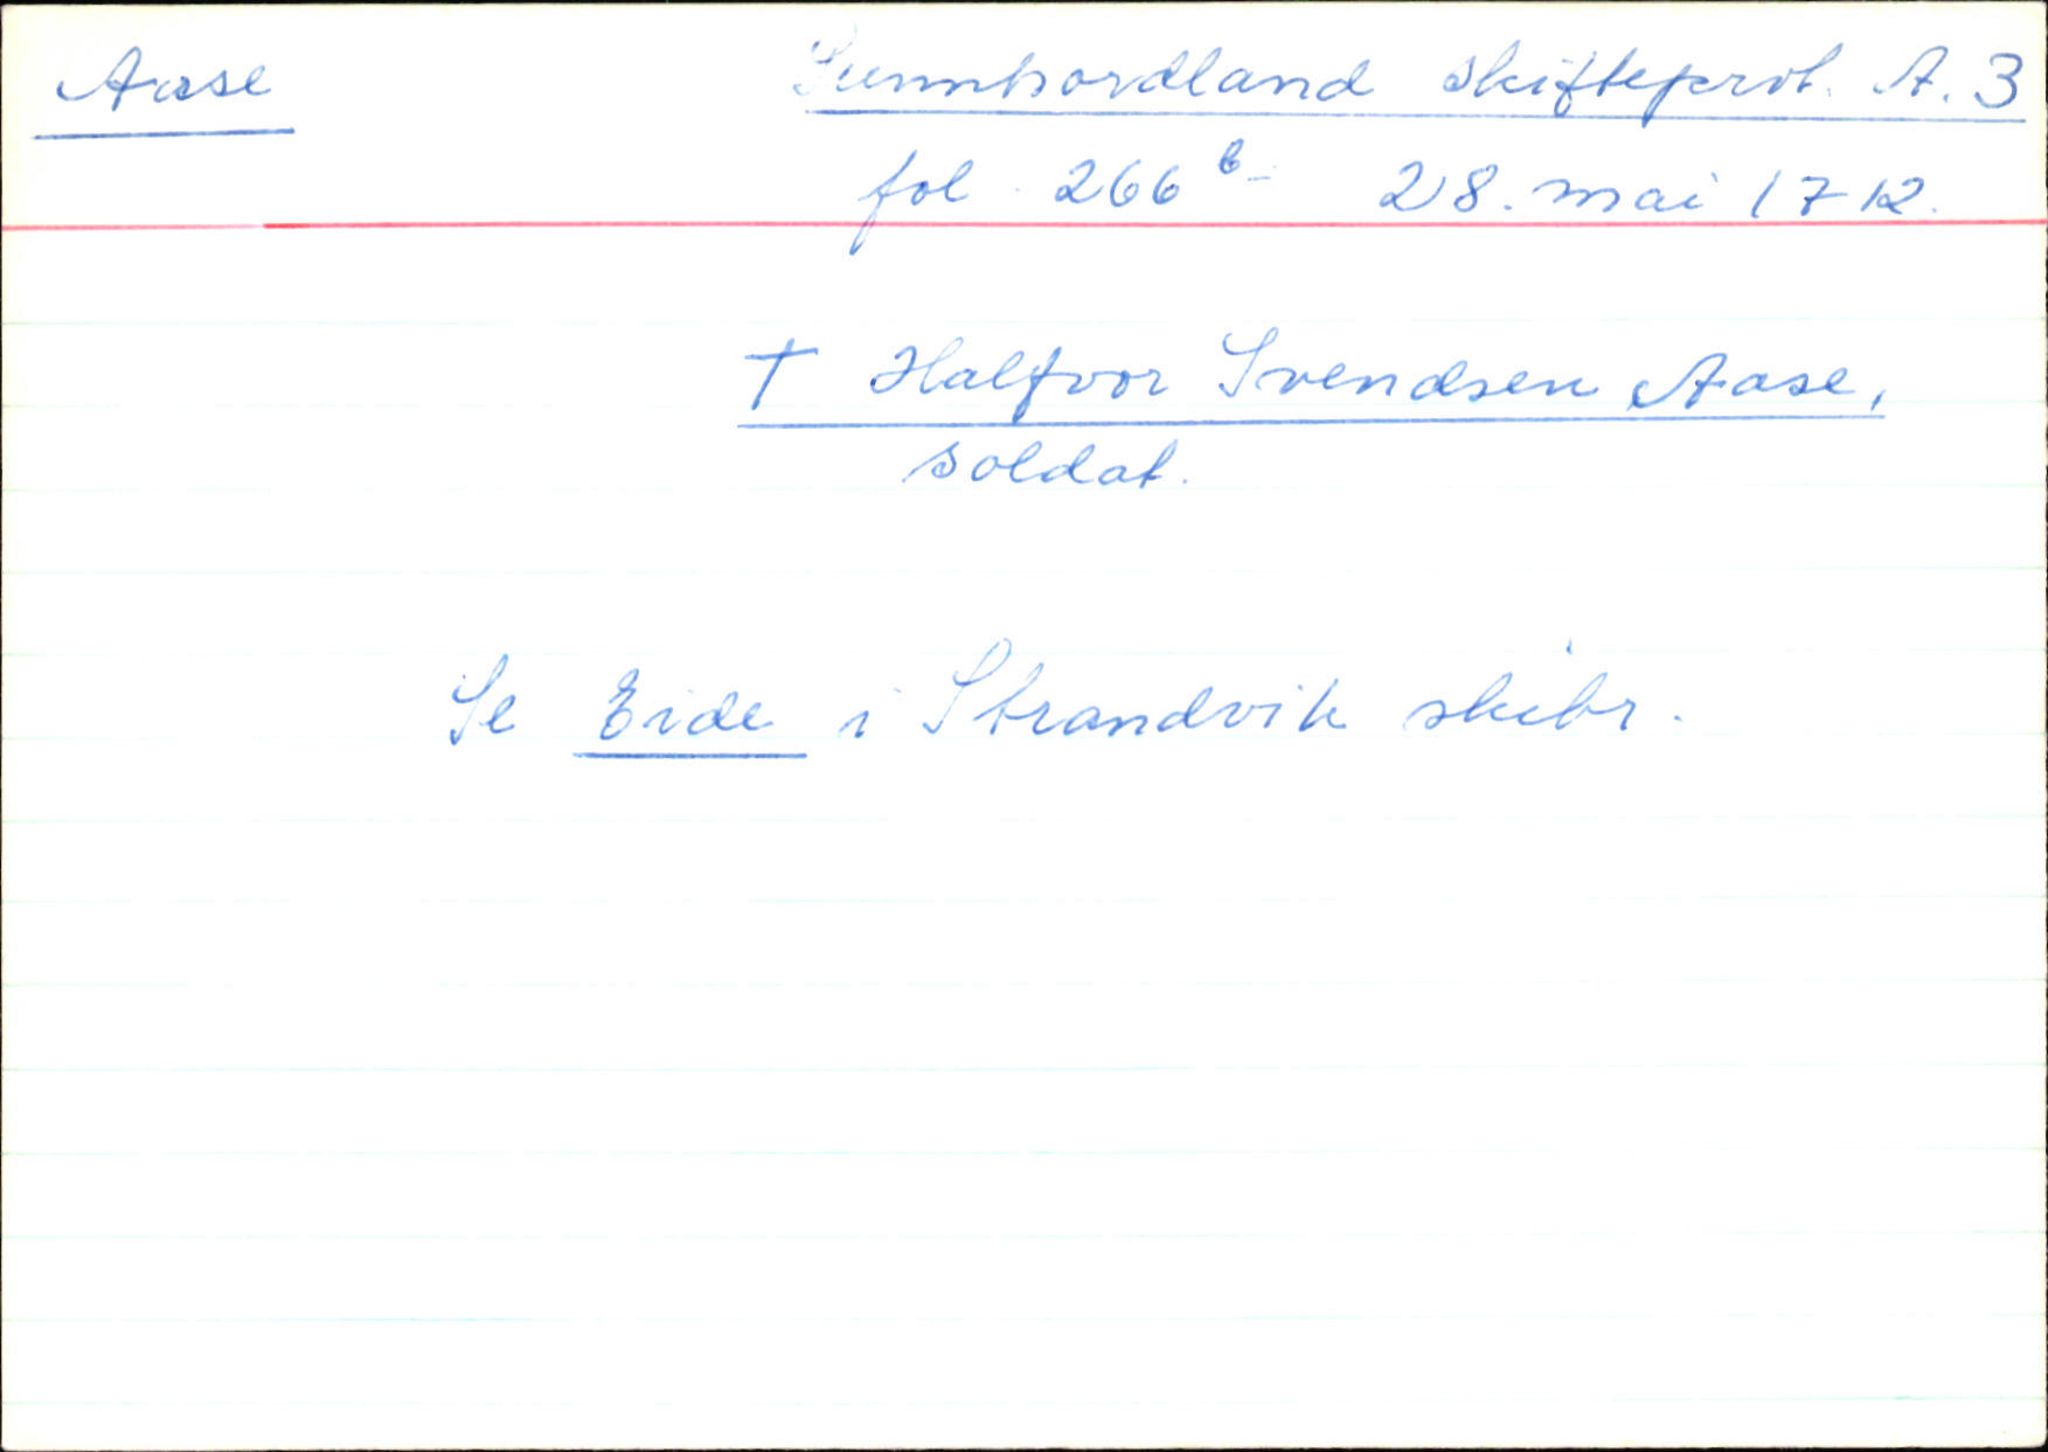 Aase
Sunnhordland skifteprot. A. 3
fol. 266 b - 28. mai 1712.
† Halfvor Svendsen Aase,
soldat.
Se Eide i Strandvik skibr.